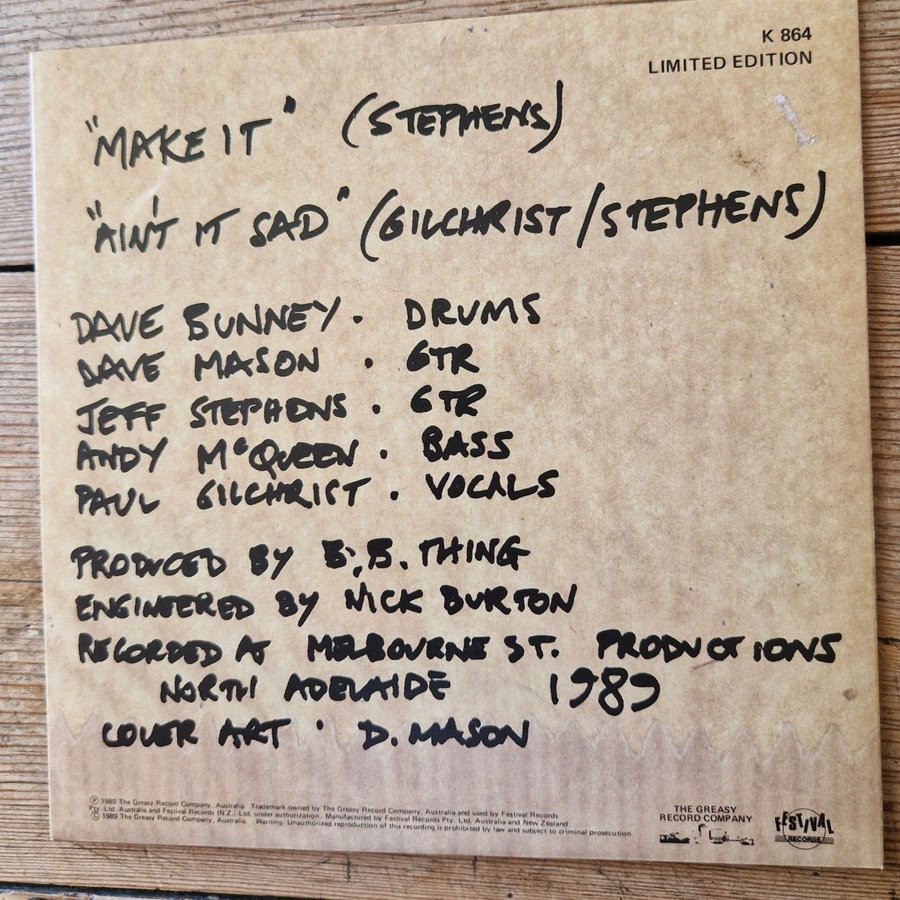 K 864
LIMITED EDITION
"MAKE IT" (STEPHENS)
"AIN'T IT SAD" (GILCHRIST/STEPHENS)
DAVE BUNNEY. DRUMS
DAVE MASON. GTR
JEFF STEPHENS. GTR
ANDY McQUEEN. BASS
PAUL GILCHRIST. VOCALS
PRODUCED BY B.B. THING
ENGINEERED BY NICK BURTON
RECORDED AT MELBOURNE ST. PRODUCTIONS
NORTH ADELAIDE 1989
COVER ART. D. MASON
℗ 1989 The Greasy Record Company, Australia. Trademark owned by The Greasy Record Company, Australia and used by Festival Records
Pty. Ltd. Australia and Festival Records (N.Z.) Ltd. under authorization. Manufactured by Festival Records Pty. Ltd. Australia and New Zealand.
© 1989 The Greasy Record Company, Australia. Warning. Unauthorized reproduction of this recording is prohibited by law and subject to criminal prosecution.
THE GREASY
RECORD COMPANY
FESTIVAL
RECORDS